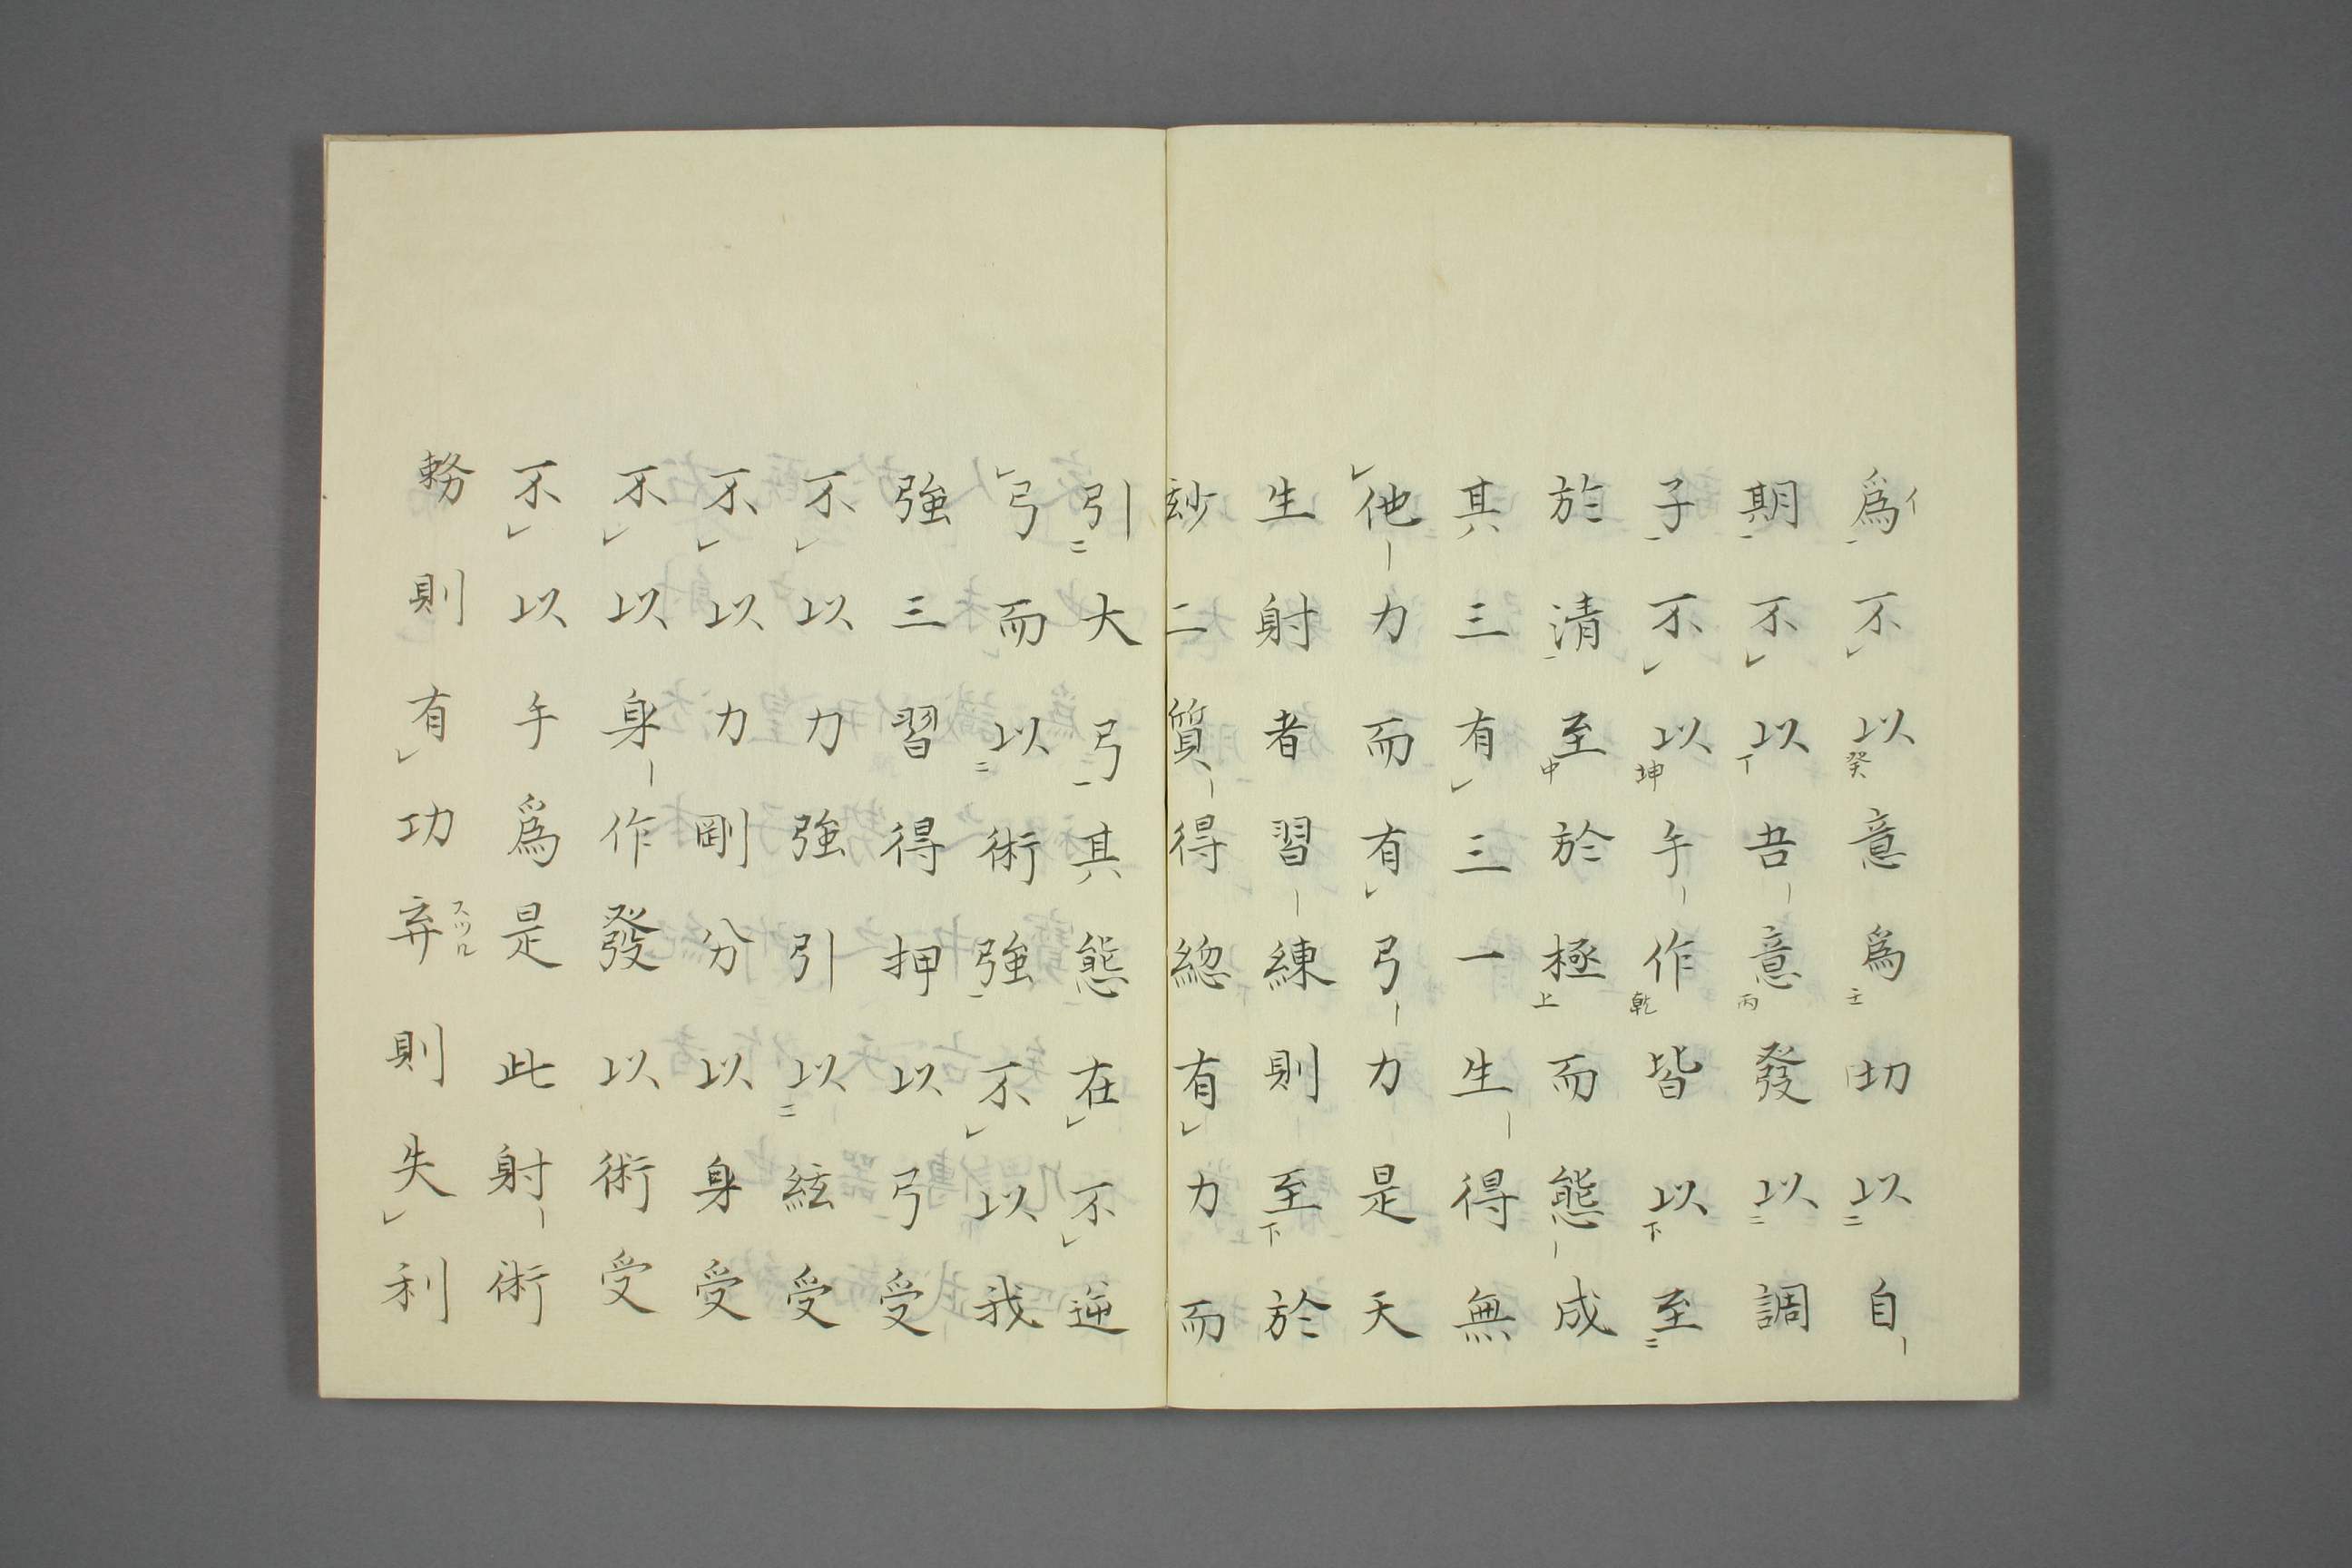 爲不以意爲切以自
期不以吾意發以調
子不以手作皆以至
於清至於極而態成
其三有三一生得無
他力而有弓力是天
生射者習練則至於
玅二質得總有力而
引大弓其態在不逆
弓而以術強不以我
強三習得押以弓受
不以力強引以絃受
不以力剛分以身受
不以身作發以術受
不以手爲是此射術
務則有功弃則失利